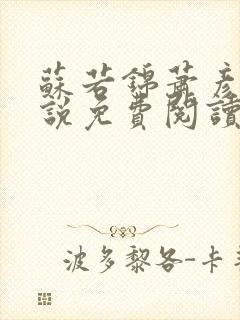 蘇若錦蕭彥
說免費閱讀
波多黎各-卡